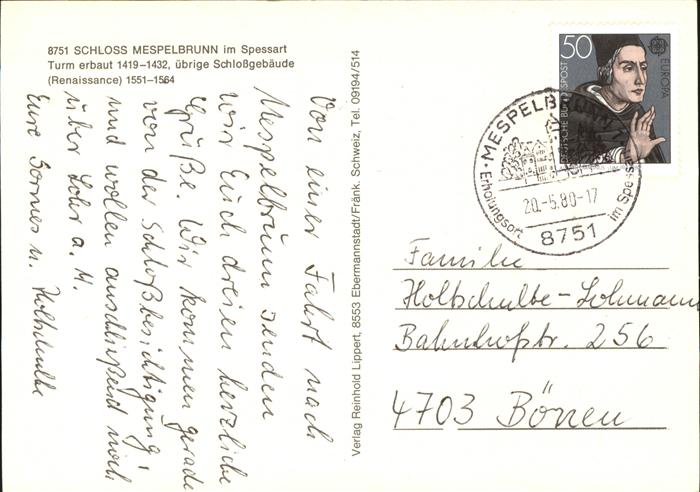 8751 SCHLOSS MESPELBRUNN im Spessart
Turm erbaut 1419–1432, übrige Schloßgebäude
(Renaissance) 1551–1564
Von einer Fahrt nach
Mespelbrunn senden
wir Euch dreien herzliche
Grüße. Wir kommen gerade
von der Schloßbesichtigung
und wollen anschließend noch
über Lohr a. M.
Eure
u. Holtschulte
Verlag Reinhold Lippert, 8553 Ebermannstadt/Fränk. Schweiz, Tel. 09194/514
50
DEUTSCHE BUNDESPOST
EUROPA
MESPELBRUNN
20.-5.80-17
Erholungsort
im Spessart
8751
Familie
Holtschulte-Lohmann
Bahnhofstr. 256
4703 Bönen